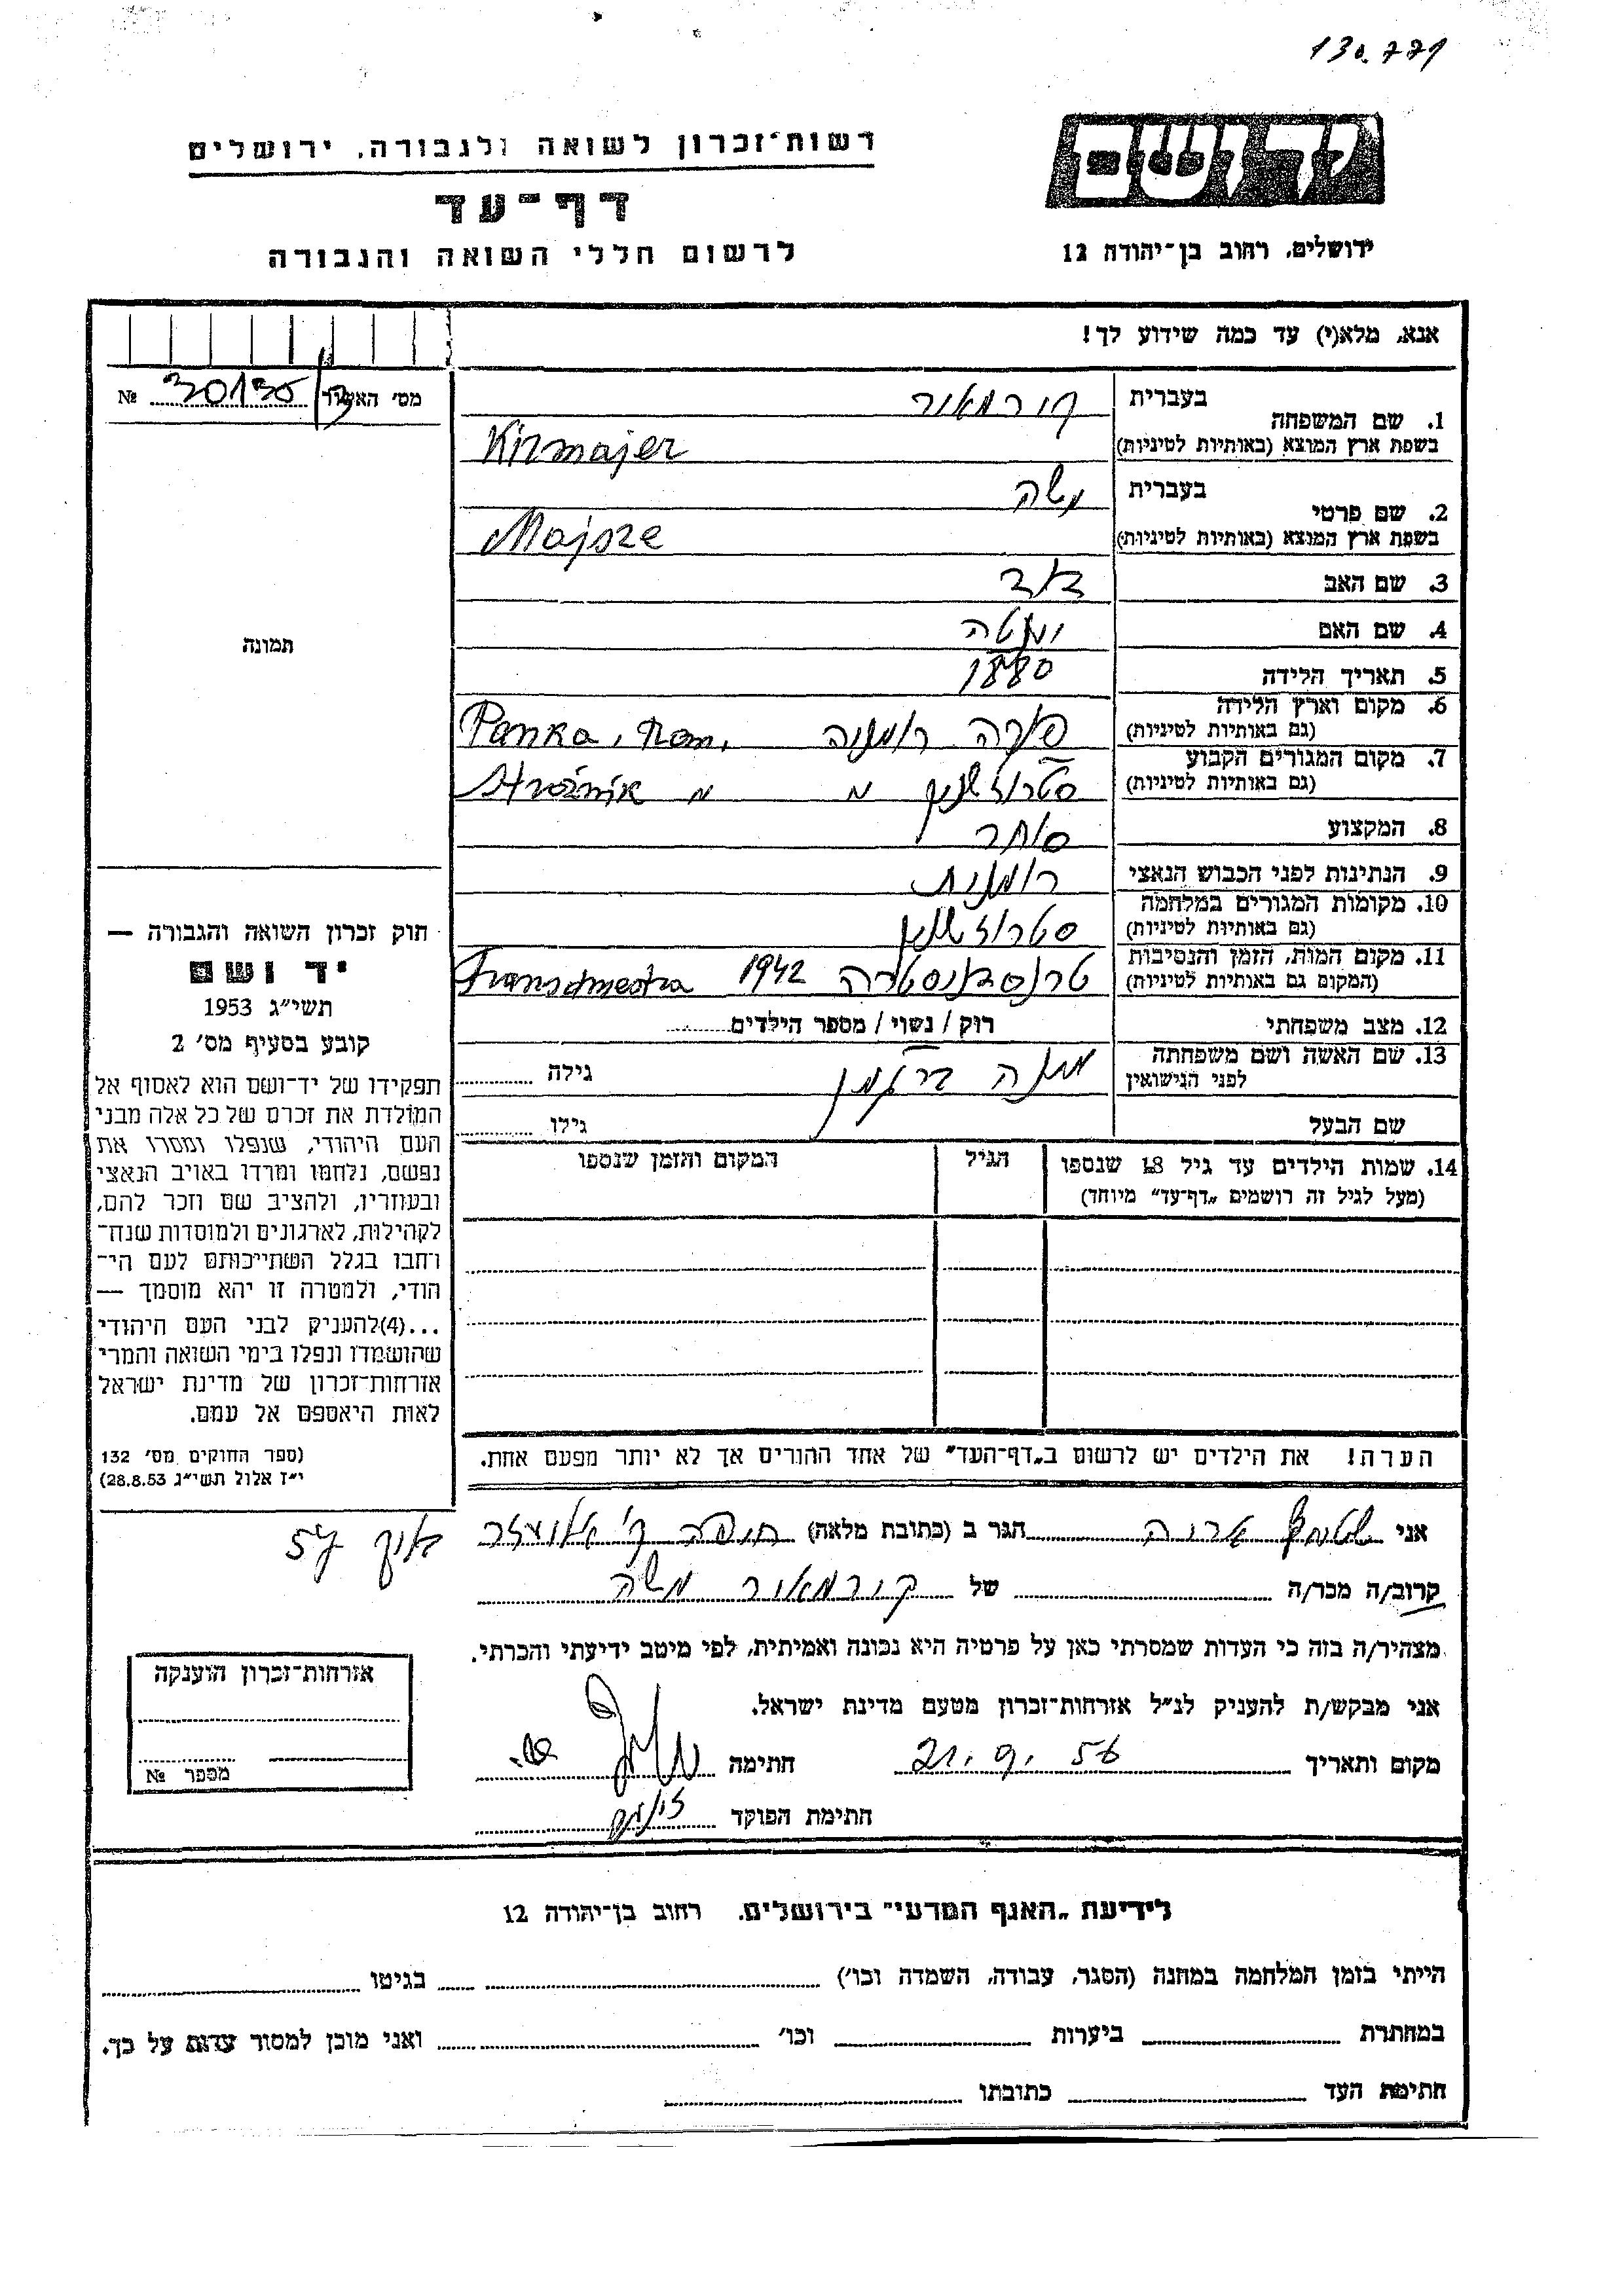 130.771
רשות־זכרון לשואה ולגבורה, ירושלים
ידושם
דף־עד
ירושלים, רחוב בן־יהודה 12
לרשום חללי השואה והגבורה
אנא, מלא(י) עד כמה שידוע לך!
מס׳ האסיר
№ 30135/13
1. שם המשפחה
בעברית קורמאור
בשפת ארץ המוצא (באותיות לטיניות) Kirmajer
2. שם פרטי
בעברית משה
בשפת ארץ המוצא (באותיות לטיניות) Majsze
3. שם האב דוד
4. שם האם
5. תאריך הלידה 1880
6. מקום וארץ הלידה
(גם באותיות לטיניות) רומניה Panka, Rom.
7. מקום המגורים הקבוע
(גם באותיות לטיניות) Strožnik "
8. המקצוע סוחר
9. הנתינות לפני הכבוש הנאצי רומנית
10. מקומות המגורים במלחמה
(גם באותיות לטיניות)
11. מקום המות, הזמן והנסיבות
(המקום גם באותיות לטיניות) טרנסדניסטריה 1942 Transdniestra
12. מצב משפחתי רוק / נשוי / מספר הילדים
13. שם האשה ושם משפחתה
לפני הנישואין
גילה
שם הבעל גילו
14. שמות הילדים עד גיל 18 שנספו
(מעל לגיל זה רושמים „דף־עד״ מיוחד)
הגיל
המקום והזמן שנספו
הערה! את הילדים יש לרשום ב„דף־העד״ של אחד ההורים אך לא יותר מפעם אחת.
תמונה
חוק זכרון השואה והגבורה —
יד ושם
תשי״ג 1953
קובע בסעיף מס׳ 2
תפקידו של יד־ושם הוא לאסוף אל
המולדת את זכרם של כל אלה מבני
העם היהודי, שנפלו ומסרו את
נפשם, נלחמו ומרדו באויב הנאצי
ובעוזריו, ולהציב שם וזכר להם,
לקהילות, לארגונים ולמוסדות שנח־
רחבו בגלל השתייכותם לעם הי־
הודי, ולמטרה זו יהא מוסמך —
...(4)להעניק לבני העם היהודי
שהושמדו ונפלו בימי השואה והמרי
אזרחות־זכרון של מדינת ישראל
לאות היאספם אל עמם.
(ספר החוקים מס׳ 132
י״ז אלול תשי״ג 28.8.53)
אני הגר ב (כתובת מלאה) חיפה ק׳ אליעזר
קרוב/ה מכר/ה של קורמאור משה
מצהיר/ה בזה כי העדות שמסרתי כאן על פרטיה היא נכונה ואמיתית, לפי מיטב ידיעתי והכרתי.
אני מבקש/ת להעניק לנ״ל אזרחות־זכרון מטעם מדינת ישראל.
מקום ותאריך 21.9.56 חתימה
חתימת הפוקד
אזרחות־זכרון הוענקה
מספר №
לידיעת „האגף המדעי״ בירושלים. רחוב בן־יהודה 12
הייתי בזמן המלחמה במחנה (הסגר, עבודה, השמדה וכו׳) בגיטו
במחתרת ביערות וכו׳ ואני מוכן למסור עדות על כך.
חתימת העד כתובתו